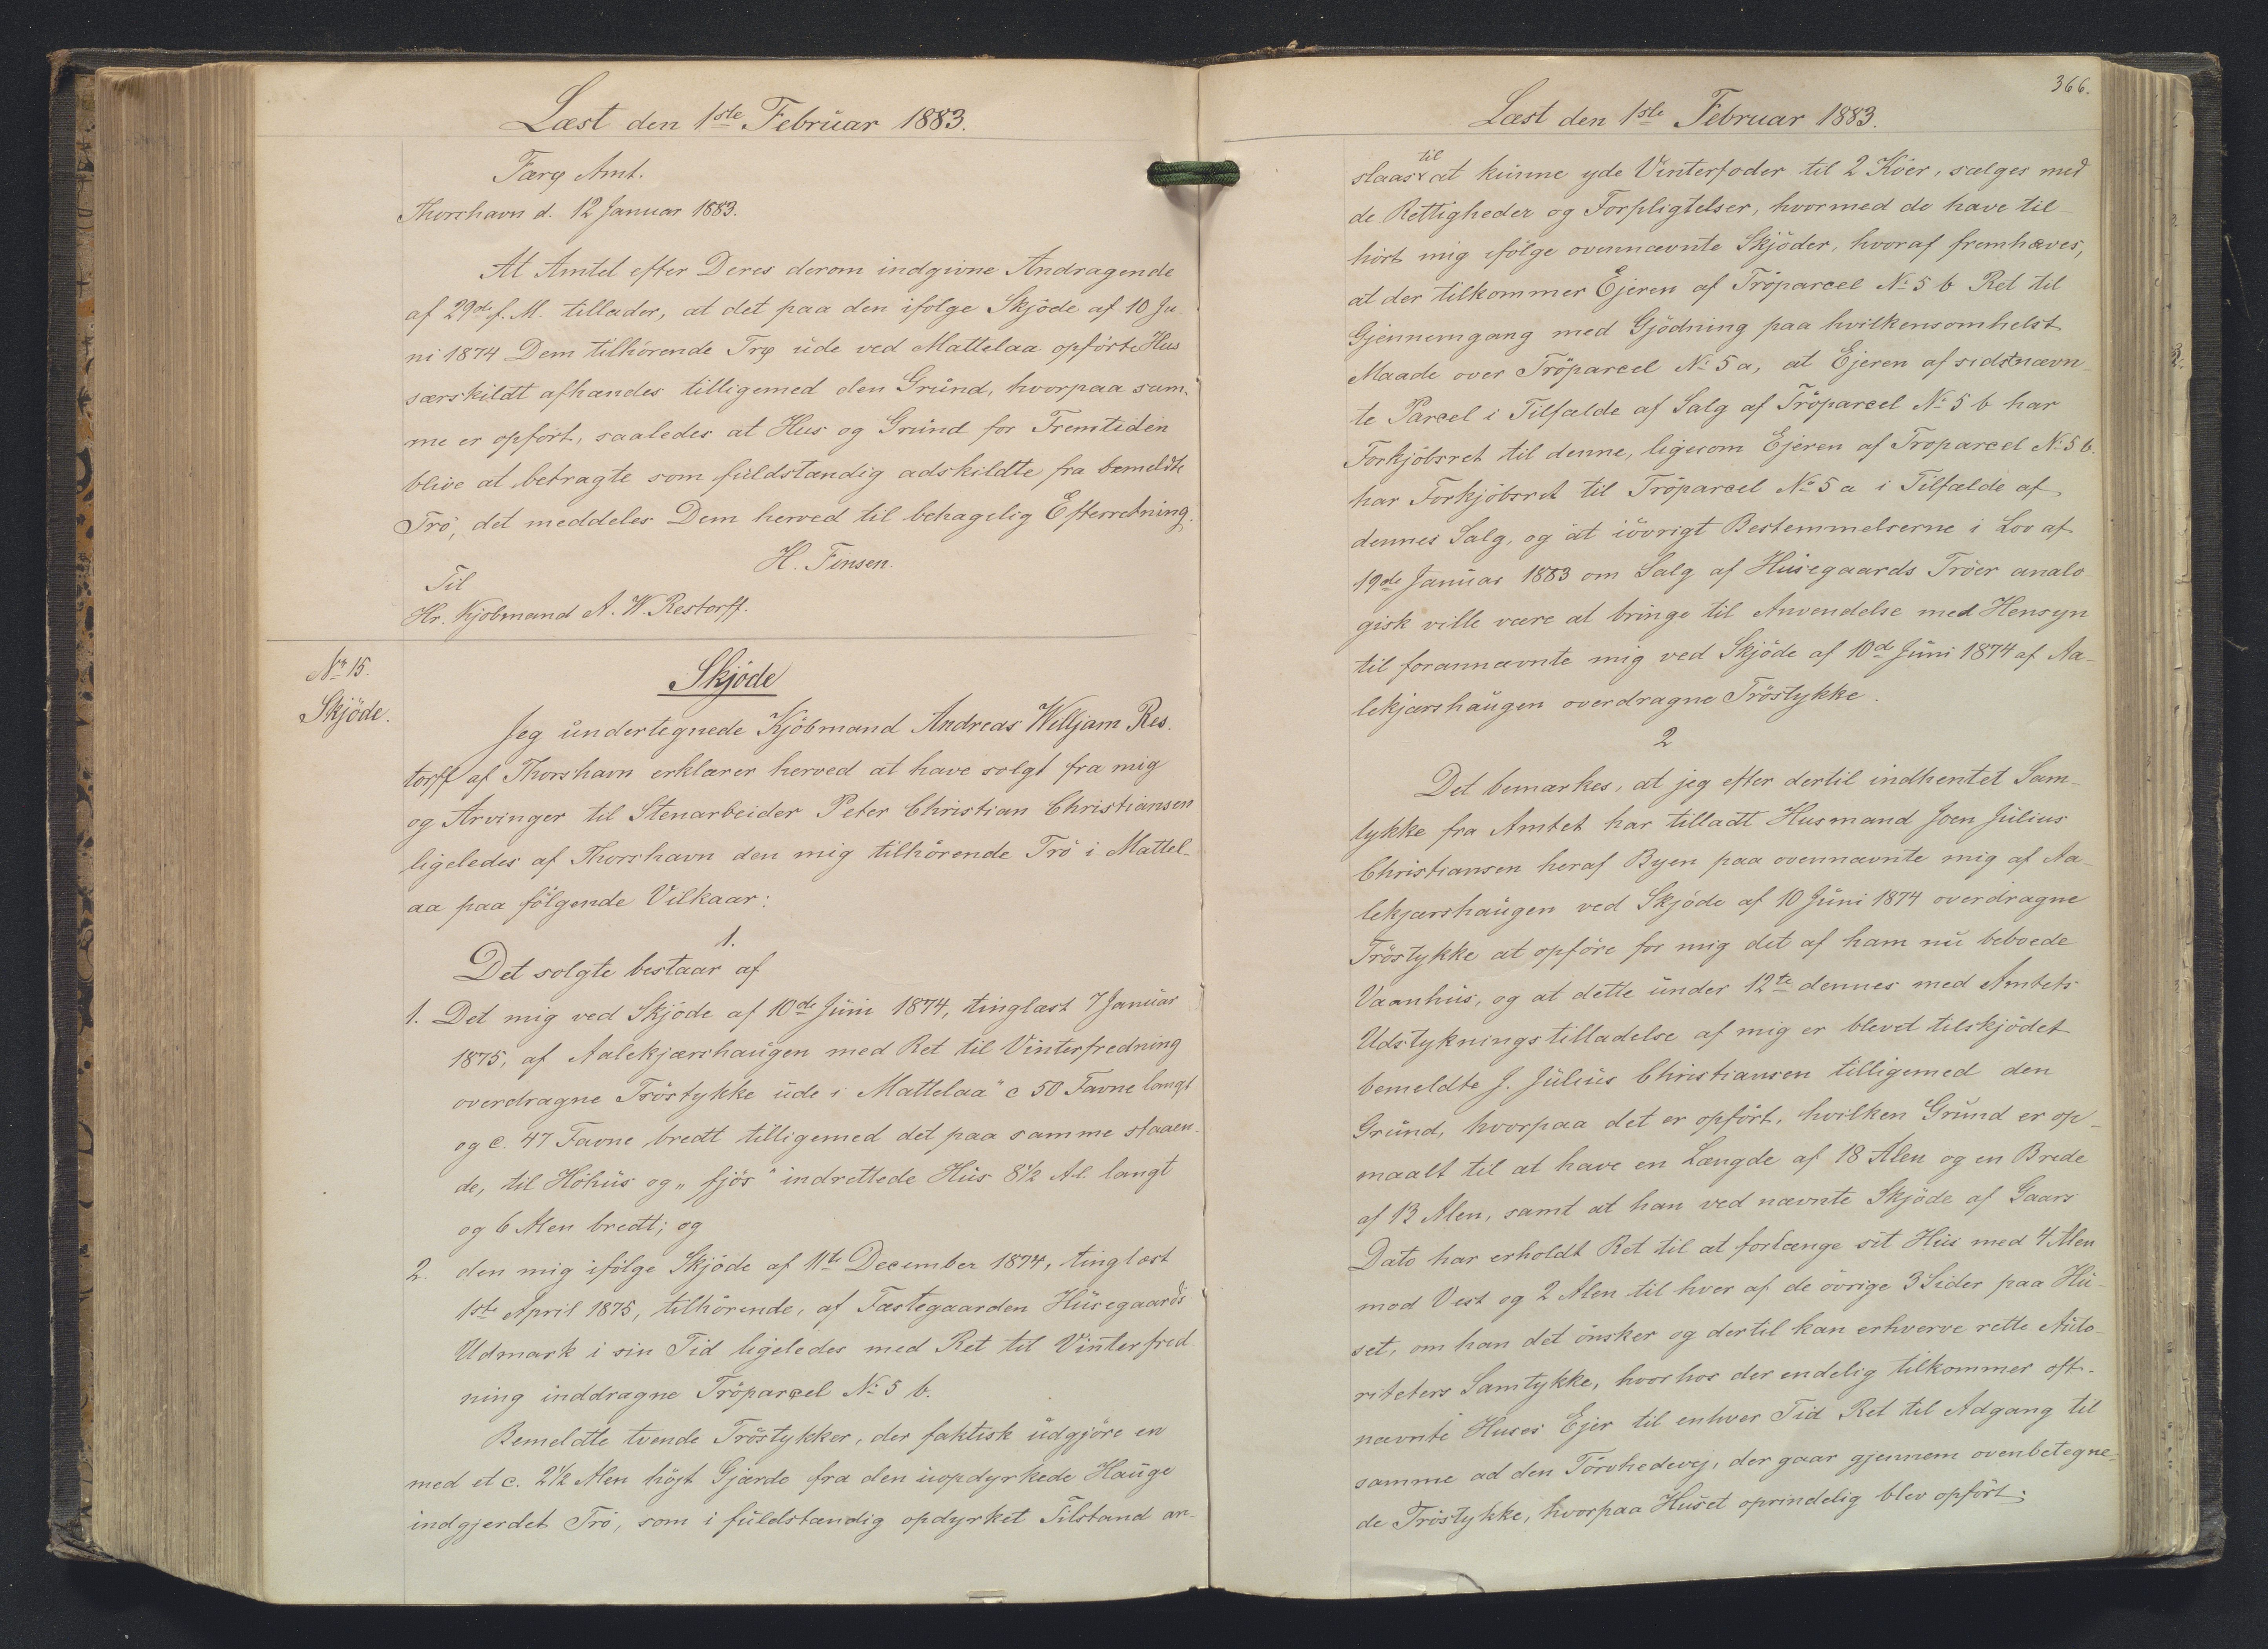 Læst den 1ste Februar 1883.
Færø Amt.
Thorshavn d. 12 Januar 1883.
At Amtet efter Deres derom indgivne Andragende
af 29de f. M. tillader, at det paa den ifølge Skjöde af 10 Ju-
ni 1874 Dem tilhörende Trø ude ved Mattelaa opförte Hus
særskildt afhændes tilligemed den Grund, hvorpaa sam-
me er opfört, saaledes at Hus og Grund for Fremtiden
blive at betragte som fuldstændig adskildte fra bemeldte
Trö, det meddeles Dem herved til behagelig Efterretning.
H. Finsen.
Til
Hr. Kjöbmand A. W. Restorff.
Nr 15.
Skjöde.
Skjöde
Jeg undertegnede Kjöbmand Andreas Willjam Res-
torff af Thorshavn erklærer herved at have solgt fra mig
og Arvinger til Stenarbeider Peter Christian Christiansen
ligeledes af Thorshavn den mig tilhörende Trö i Mattel-
aa paa fölgende Vilkaar:
1.
Det solgte bestaar af
1. Det mig ved Skjöde af 10de Juni 1874, tinglæst 7 Januar
1875, af Aalekjærshaugen med Ret til Vinterfredning
overdragne Tröstykke ude i Mattelaa" c 50 Favne langt
og c. 47 Favne bredt tilligemed det paa samme staaen-
de, til Höhus og „fjös" indrettede Hus 8½ Al. langt
og 6 Alen bredt; og
2. den mig ifölge Skjöde af 11te December 1874, tinglæst
1ste April 1875, tilhörende, af Fæstegaarden Husegaards
Udmark i sin Tid ligeledes med Ret til Vinterfred-
ning inddragne Tröparcel No 5 b.
Bemeldte tvende Tröstykker, der faktisk udgjöre en
med et c. 2½ Alen höjt Gjærde fra den uopdyrkede Hauge
indgjerdet Trö, som i fuldstændig opdyrket Tilstand an-
366.
Læst den 1ste Februar 1883.
slaas til at kunne yde Vinterfoder til 2 Köer, sælges med
de Rettigheder og Forpligtelser, hvormed de have til
hört mig ifölge ovennævnte Skjöder, hvoraf fremhæves,
at der tilkommer Ejeren af Tröparcel No 5 b Ret til
Gjennemgang med Gjödning paa hvilkensomhelst
Maade over Tröparcel No 5 a, at Ejeren af sidstnævn-
te Parcel i Tilfælde af Salg af Tröparcel No 5 b har
Forkjöbsret til denne, ligesom Ejeren af Troparcel No 5 b.
har Forkjöbsret til Tröparcel No 5 a i Tilfælde af
dennes Salg, og at iövrigt Bestemmelserne i Lov af
19de Januar 1883 om Salg af Husegaards Tröer analo
gisk ville være at bringe til Anvendelse med Hensyn
til forannævnte mig ved Skjöde af 10de Juni 1874 af Aa-
lekjærshaugen overdragne Tröstykke.
2
Det bemærkes, at jeg efter dertil indhentet Sam-
tykke fra Amtet har tilladt Husmand Joen Julius
Christiansen heraf Byen paa ovennævnte mig af Aa-
lekjærshaugen ved Skjöde af 10 Juni 1874 overdragne
Tröstykke at opföre for mig det af ham nu beboede
Vaanhus, og at dette under 12te dennes med Amtets
Udstykningstilladelse af mig er blevet tilskjödet
bemeldte J. Julius Christiansen tilligemed den
Grund, hvorpaa det er opfört, hvilken Grund er op-
maalt til at have en Længde af 18 Alen og en Brede
af 13 Alen, samt at han ved nævnte Skjöde af Gaars
Dato har erholdt Ret til at forlænge sit Hus med 4 Alen
mod Vest og 2 Alen til hver af de övrige 3 Sider paa Hu-
set, om han det önsker og dertil kan erhverve rette Auto-
riteters Samtykke, hvorhos der endelig tilkommer oft-
nævnte Huses Ejer til enhver Tid Ret til Adgang til
samme ad den Törvhedevej, der gaar gjennem ovenbetegne-
de Tröstykke, hvorpaa Huset oprindelig blev opfört.